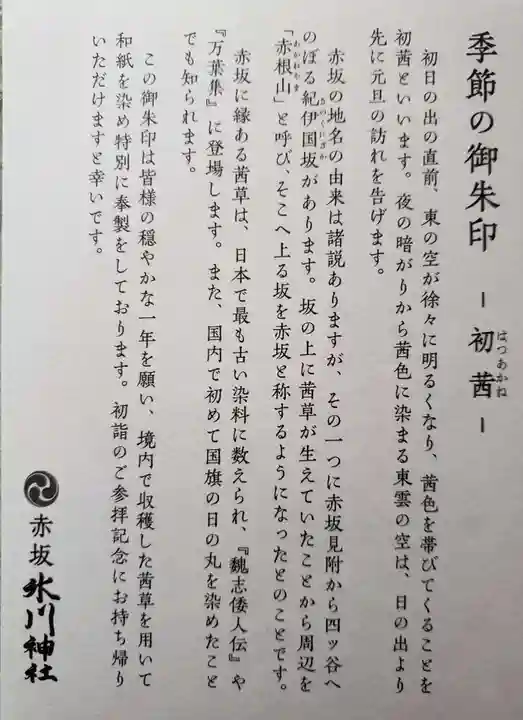 季節の御朱印 － 初茜－
はつあかね
初日の出の直前、東の空が徐々に明るくなり、茜色を帯びてくることを
初茜といいます。夜の暗がりから茜色に染まる東雲の空は、日の出より
先に元旦の訪れを告げます。
赤坂の地名の由来は諸説ありますが、その一つに赤坂見附から四ッ谷へ
のぼる紀伊国坂があります。坂の上に茜草が生えていたことから周辺を
きのくにざか
「赤根山」と呼び、そこへ上る坂を赤坂と称するようになったとのことです。
あかねやま
赤坂に縁ある茜草は、日本で最も古い染料に数えられ、『魏志倭人伝』や
『万葉集』に登場します。また、国内で初めて国旗の日の丸を染めたこと
でも知られます。
この御朱印は皆様の穏やかな一年を願い、境内で収穫した茜草を用いて
和紙を染め特別に奉製をしております。初詣のご参拝記念にお持ち帰り
いただけますと幸いです。
赤坂氷川神社